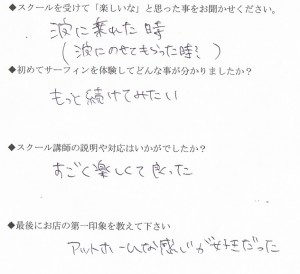 ◆スクールを受けて「楽しいな」と思った事をお聞かせください。
波に乗れた時
(波にのせてもらった時?)
◆初めてサーフィンを体験してどんな事が分かりましたか?
もっと続けてみたい
◆スクール講師の説明や対応はいかがでしたか?
すごく楽しくて良かった
◆最後にお店の第一印象を教えて下さい
アットホームな感じが好きだった